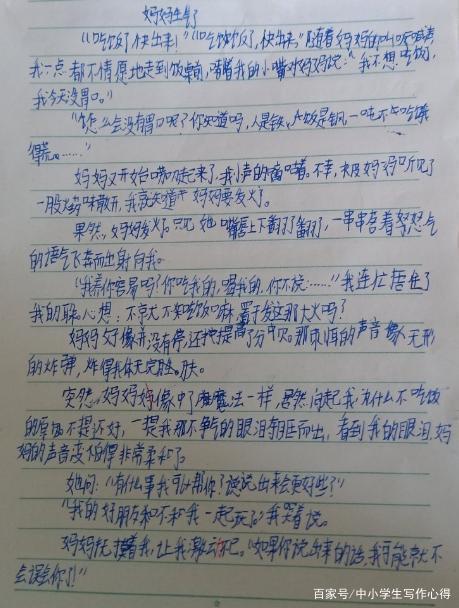 妈妈生气了
"吃饭了快出来!""吃饭饭了,快出来。"随着妈妈的
我一点都不情愿地走到饭桌前,嘟着我的小嘴对妈妈说:"我不想吃饭,
我今天没胃口。"
"怎么会没有胃口呢?你知道吗,人是铁,饭是钢,一吨不吃饿
得慌。……"
妈妈又开始唠叨起来了,我小声的嘀咕着。不幸,被妈妈听见了
一股火药味散开,我就知道妈妈要发火。
果然,妈妈发火了。只见她嘴唇上下翻了翻了,一串串含着努怒气
的语气飞奔而出射向我。
"我养你容易吗?你吃我的,喝我的,你不说……"我连忙捂住了
我的耳心想:不就不知吃饭嘛,至于发这那大火吗?
妈妈好像并没有停,还把提声了分贝。那恐怕的声音像个无形
的炸弹,炸得我体无完肤。
突然,妈妈像中了魔法一样,居然问起我为什么不吃饭
的原因不提还好,一提我那不争气的眼泪夺眶而出,看到我的眼泪,妈
妈的声音变得非常柔和了。
她问:"有什么事我可以帮你?说说出来会更好些?"
"我的好朋友和不和我一起玩了。"我哭着说。
妈妈抚摸着我,让我振作吧。"如果你说出来的话,我可能就不
会误会你了!"
百家号/中小学生写作心得